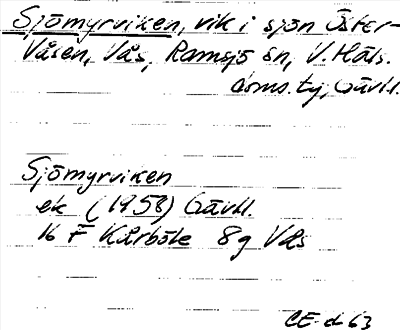 Sjömyrviken, vik i sjön Öster-
Våsen, Vås, Ramsjö sn, V. Häls.
doms. tj, Gävll.
Sjömyrviken
ek (1958) Gävll.
16 F Kårböle 8g Vås
CE d 63